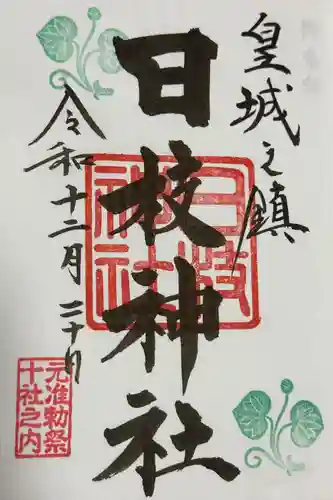 皇城之鎮
日枝神社
令和十二月二十日
日枝神社
元准勅祭
十社之内